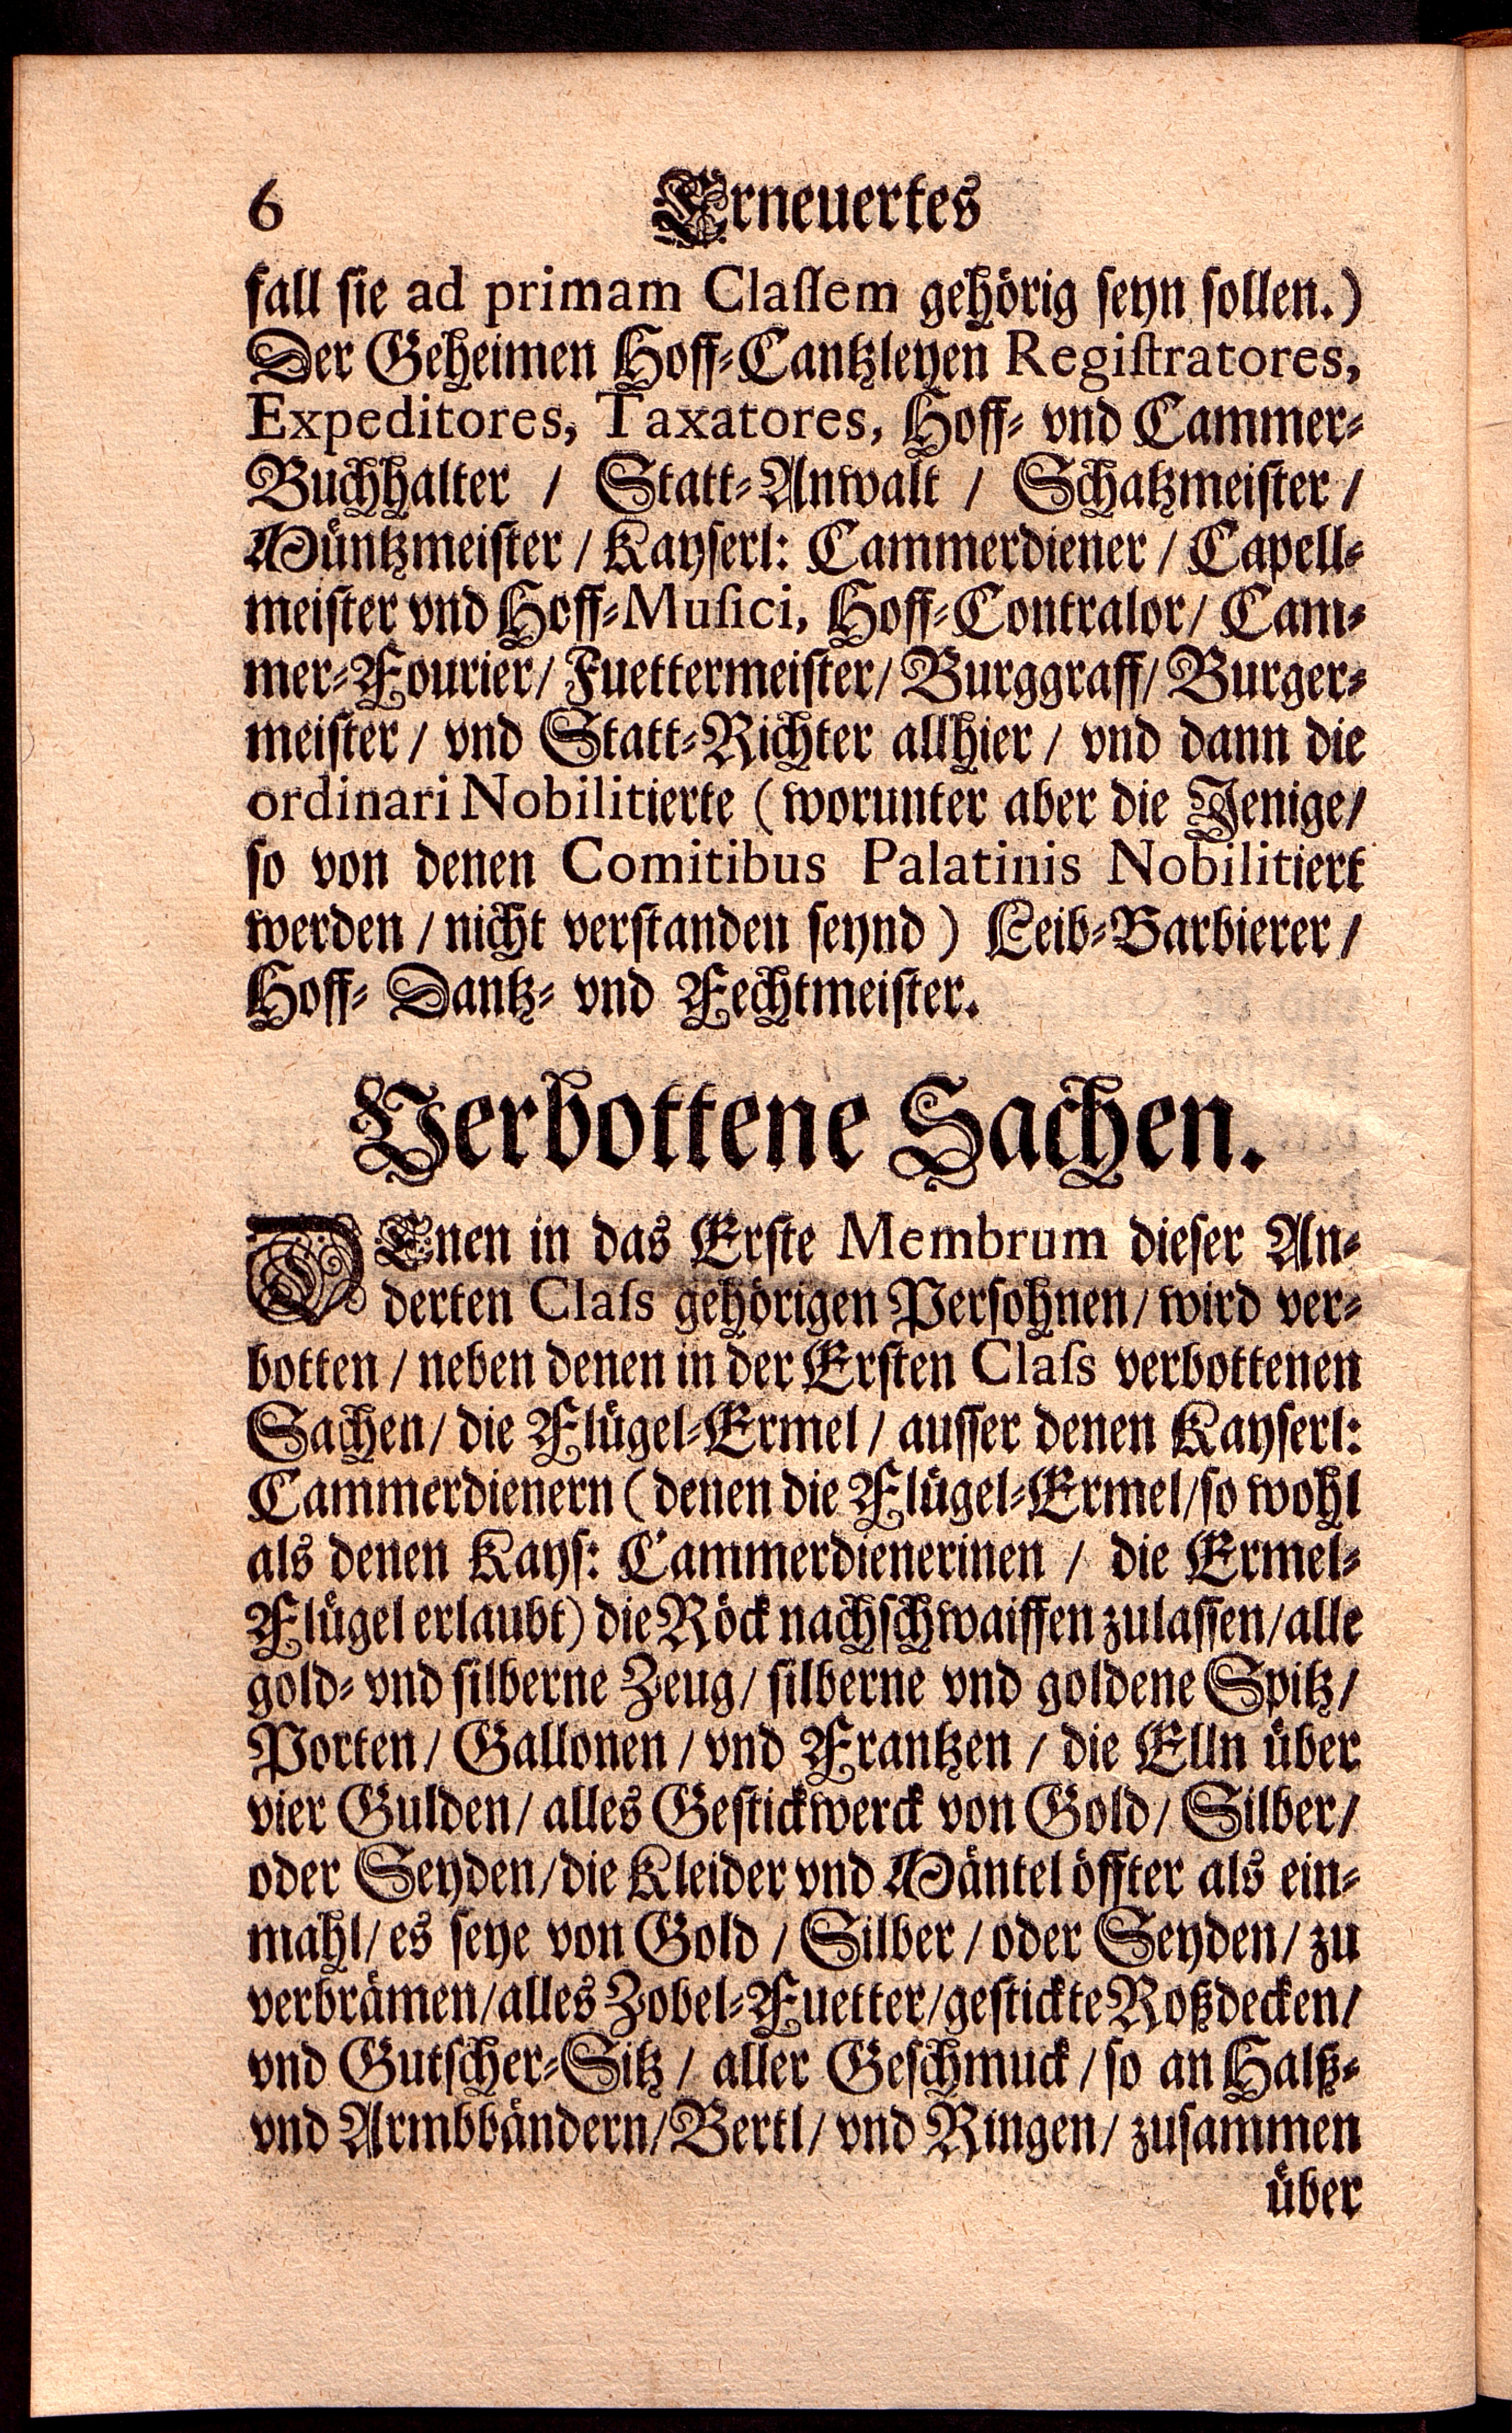 6 Erneuertes
fall sie ad primam Classem gehörig seyn sollen.)
Der Geheimen Hoff-Cantzleyen Registratores,
Expeditores, Taxatores, Hoff- vnd Cammer-
Buchhalter / Statt-Anwalt / Schatzmeister /
Müntzmeister / Kayserl: Cammerdiener / Capell-
meister vnd Hoff-Musici, Hoff-Contralor / Cam-
mer-Fourier / Fuettermeister / Burggraff / Burger-
meister / vnd Statt-Richter allhier / vnd dann die
ordinari Nobilitierte (worunter aber die Jenige /
so von denen Comitibus Palatinis Nobilitiert
werden / nicht verstanden seynd) Leib-Barbierer /
Hoff- Dantz- vnd Fechtmeister.
Verbottene Sachen.
DEnen in das Erste Membrum dieser An-
derten Class gehörigen Persohnen / wird ver-
botten / neben denen in der Ersten Class verbottenen
Sachen / die Flügel-Ermel / ausser denen Kayserl:
Cammerdienern (denen die Flügel-Ermel / so wohl
als denen Kays: Cammerdienerinen / die Ermel-
Flügel erlaubt) die Röck nachschwaiffen zulassen / alle
gold- vnd silberne Zeug / silberne vnd goldene Spitz /
Porten / Gallonen / vnd Frantzen / die Elln über
vier Gulden / alles Gestickwerck von Gold / Silber /
oder Seyden / die Kleider vnd Mäntel öffter als ein-
mahl / es seye von Gold / Silber / oder Seyden / zu
verbrämen / alles Zobel-Fuetter / gestickte Roßdecken /
vnd Gutscher-Sitz / aller Geschmuck / so an Halß-
vnd Armbbändern / Bertl / vnd Ringen / zusammen
über